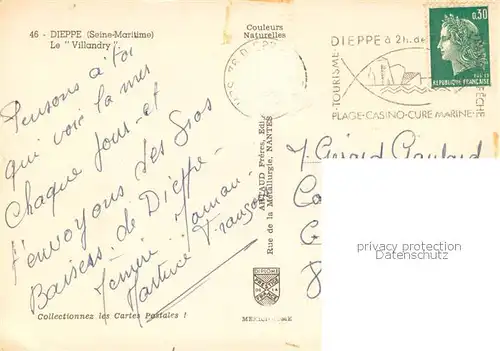 46 - DIEPPE (Seine-Maritime)
Le "Villandry"
Couleurs
Naturelles
0,30
REPUBLIQUE FRANÇAISE
DIEPPE à 2h. de
TOURISME
PÊCHE
PLAGE-CASINO-CURE MARINE
Pensons à toi
qui voie la mer
Chaque Jour et
t'envoyons des Gros
Baisers de Dieppe
Maman
Martine François
ARTAUD Frères, Edit
Rue de la Métallurgie, NANTES
Gérard
privacy protection
Datenschutz
DIPLOME
FRANCE
Collectionnez les Cartes Postales !